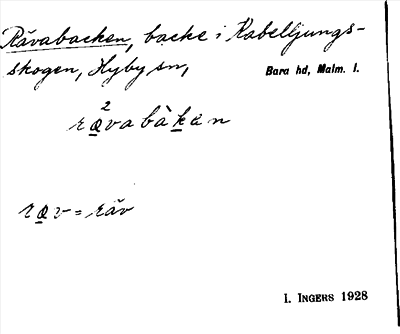 Rävabacken, backe i Kabelljungs-
skogen, Hyby sn, Bara hd, Malm. l.
2
rävabàkèn
ræv = räv
I. INGERS 1928